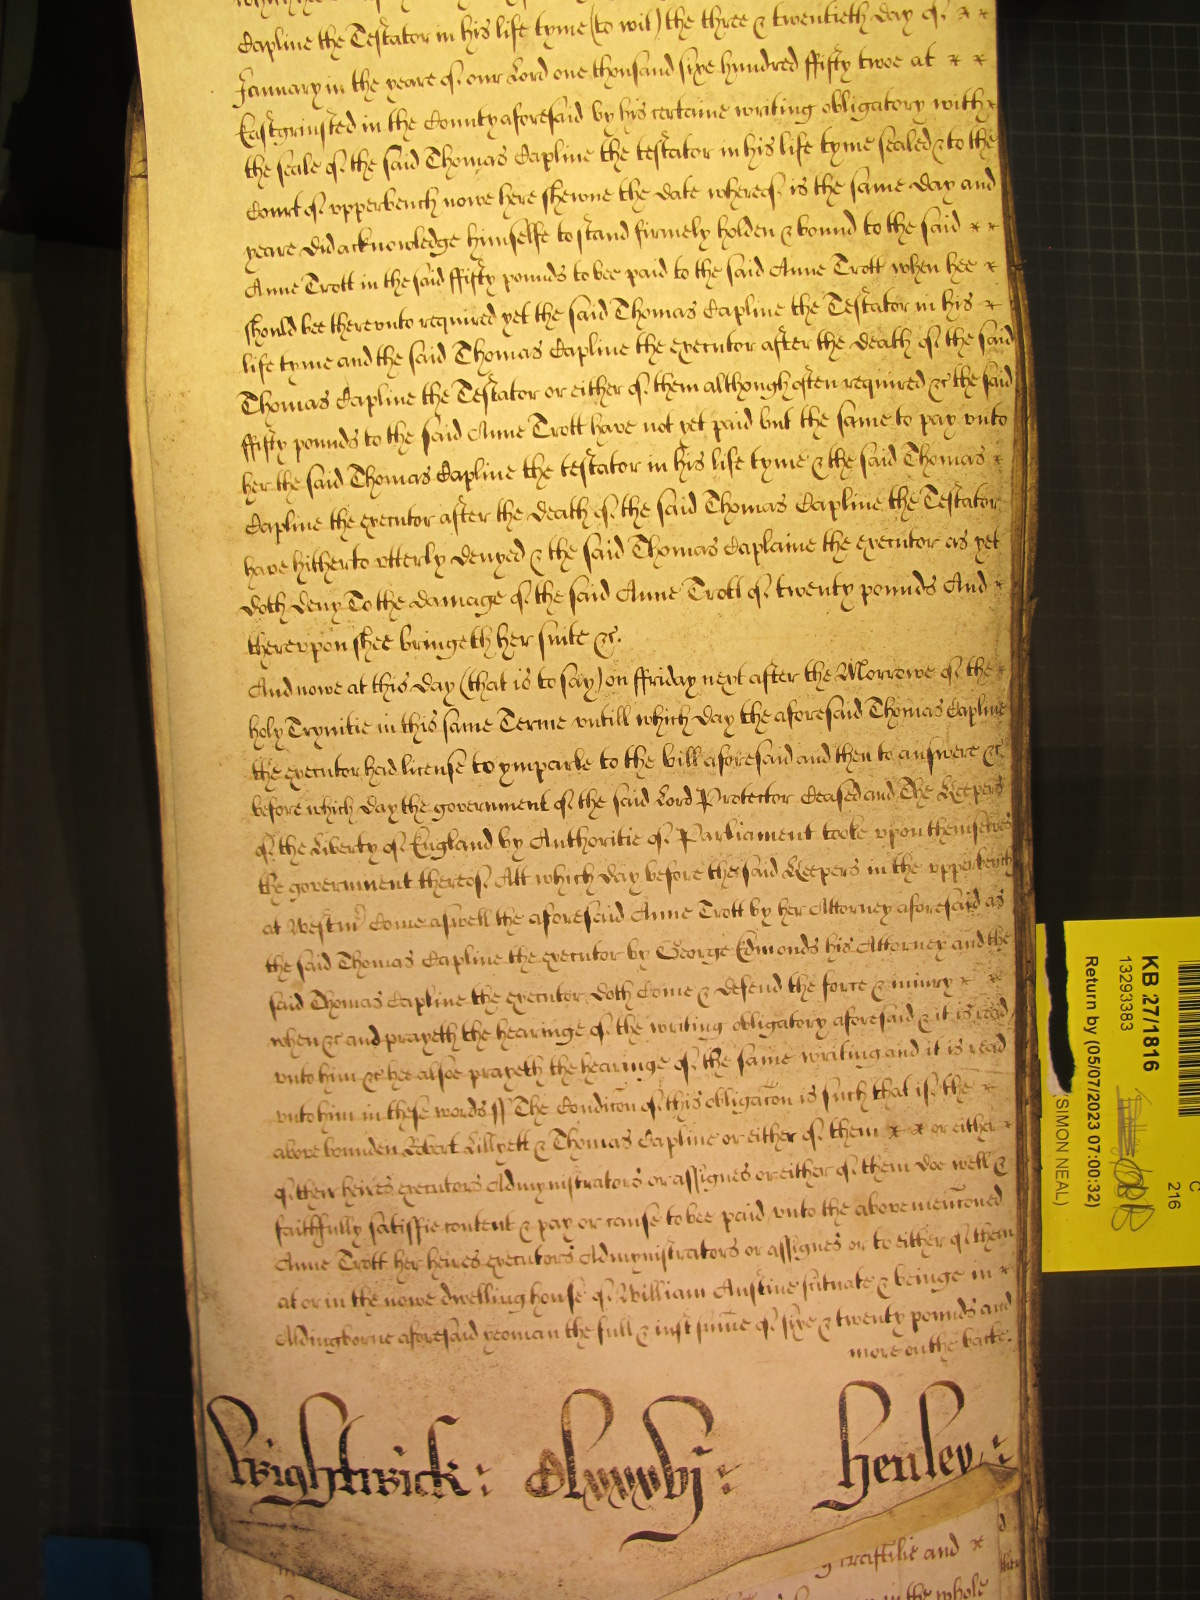 Capline the Testator in his life tyme (to wit) the three & twentieth day of
January in the yeare of our Lord one thousand sixe hundred ffifty twoe at
Eastgrinsted in the County aforesaid by his certaine writing obligatory with
the seale of the said Thomas Capline the testator in his life tyme sealed & to the
Court of vpperbench nowe here shewne the date whereof is the same day and
yeare did acknowledge himselfe to stand firmely holden & bound to the said
Anne Trott in the said ffifty pounds to bee paid to the said Anne Trott when hee
should bee therevnto required yet the said Thomas Capline the Testator in his
life tyme and the said Thomas Capline the executor after the death of the said
Thomas Capline the Testator or either of them although often required &c the said
ffifty pounds to the said Anne Trott have not yet paid but the same to pay vnto
her the said Thomas Capline the testator in his life tyme & the said Thomas
Capline the executor after the death of the said Thomas Capline the Testator
have hitherto vtterly denyed & the said Thomas Caplaine the executor as yet
doth deny To the damage of the said Anne Trott of twenty pounds And
therevpon shee bringeth her suite &c.
And nowe at this day (that is to say) on ffriday next after the Morrowe of the
holy Trynitie in this same Terme vntill which day the aforesaid Thomas Capline
the executor had license to ymparle to the bill aforesaid and then to answere &c
before which day the government of the said Lord Protector Ceased and The Keepers
of the Liberty of England by Authoritie of Parliament tooke vpon themselves
the government thereof Att which day before the said Keepers in the vpperbench
at Westm' Come aswell the aforesaid Anne Trott by her Attorney aforesaid as
the said Thomas Capline the executor by George Edmonds his Attorney and the
said Thomas Capline the executor doth Come & defend the force & iniury
when &c and prayeth the hearinge of the writing obligatory aforesaid & it is read
vnto him &c hee alsoe prayeth the hearinge of the same writing and it is read
vnto him in these words ss The Condicon of this obligacon is such that if the
above bounden Robert Lillyett & Thomas Capline or either of them or either
of their heires executors Admynistrators or assignes or either of them doe well &
faithfully satisfie content & pay or cause to bee paid vnto the above menconed
Anne Trott her heires executors Admynistrators or assignes or to either of them
at or in the nowe dwelling house of William Anstine scituate & beinge in
Aldingborne aforesaid yeoman the full & iust sume of sixe & twenty pounds and
more on the backe.
Wightwick: Henley
craftilie and
in the whole
KB 27/1816
13293383
Return by (05/07/2023 07:00:32)
(SIMON NEAL)
C
216